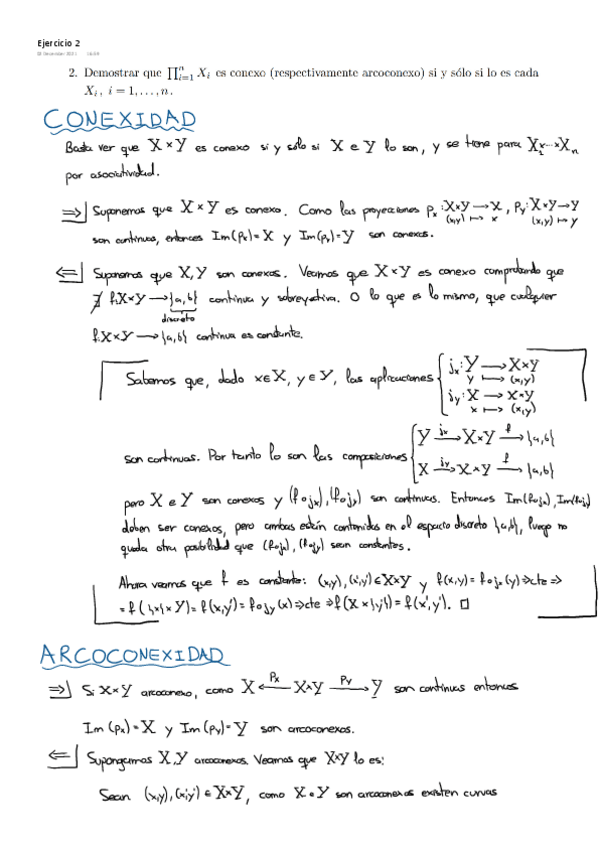 Ejercicio 2
2. Demostrar que ∏ᵢ₌₁ⁿ Xᵢ es conexo (respectivamente arcoconexo) si y sólo si lo es cada
Xᵢ, i = 1, . . . , n.
CONEXIDAD
Basta ver que X×Y es conexo si y sólo si X e Y lo son, y se tiene para X₁×...×Xₙ
por asociatividad.
⇒| Suponemos que X×Y es conexo. Como las proyecciones pₓ: X×Y → X, p_y: X×Y → Y
(x,y) ↦ x (x,y) ↦ y
son continuas, entonces Im(pₓ)=X y Im(p_y)=Y son conexos.
⇐| Suponemos que X,Y son conexos. Veamos que X×Y es conexo comprobando que
∄ f: X×Y → {a,b} continua y sobreyectiva. O lo que es lo mismo, que cualquier
discreto
f: X×Y → {a,b} continua es constante.
Sabemos que, dado x∈X, y∈Y, las aplicaciones { jₓ: Y → X×Y
y ↦ (x,y)
j_y: X → X×Y
x ↦ (x,y)
son continuas. Por tanto lo son las composiciones { Y →jₓ X×Y →f {a,b}
X →j_y X×Y →f {a,b}
pero X e Y son conexos y (f∘jₓ), (f∘j_y) son continuas. Entonces Im(f∘jₓ), Im(f∘j_y)
deben ser conexos, pero ambas están contenidas en el espacio discreto {a,b}, luego no
queda otra posibilidad que (f∘jₓ), (f∘j_y) sean constantes.
Ahora veamos que f es constante: (x,y), (x',y') ∈ X×Y y f(x,y) = f∘jₓ(y) ⇒ cte ⇒
= f({x}×Y) = f(x,y') = f∘j_y(x) ⇒ cte ⇒ f(X×{y'}) = f(x',y'). □
ARCOCONEXIDAD
⇒| Si X×Y arcoconexo, como X ←pₓ X×Y →p_y Y son continuas entonces
Im(pₓ)=X y Im(p_y)=Y son arcoconexos.
⇐| Supongamos X,Y arcoconexos. Veamos que X×Y lo es:
Sean (x,y), (x',y') ∈ X×Y, como X e Y son arcoconexos existen curvas